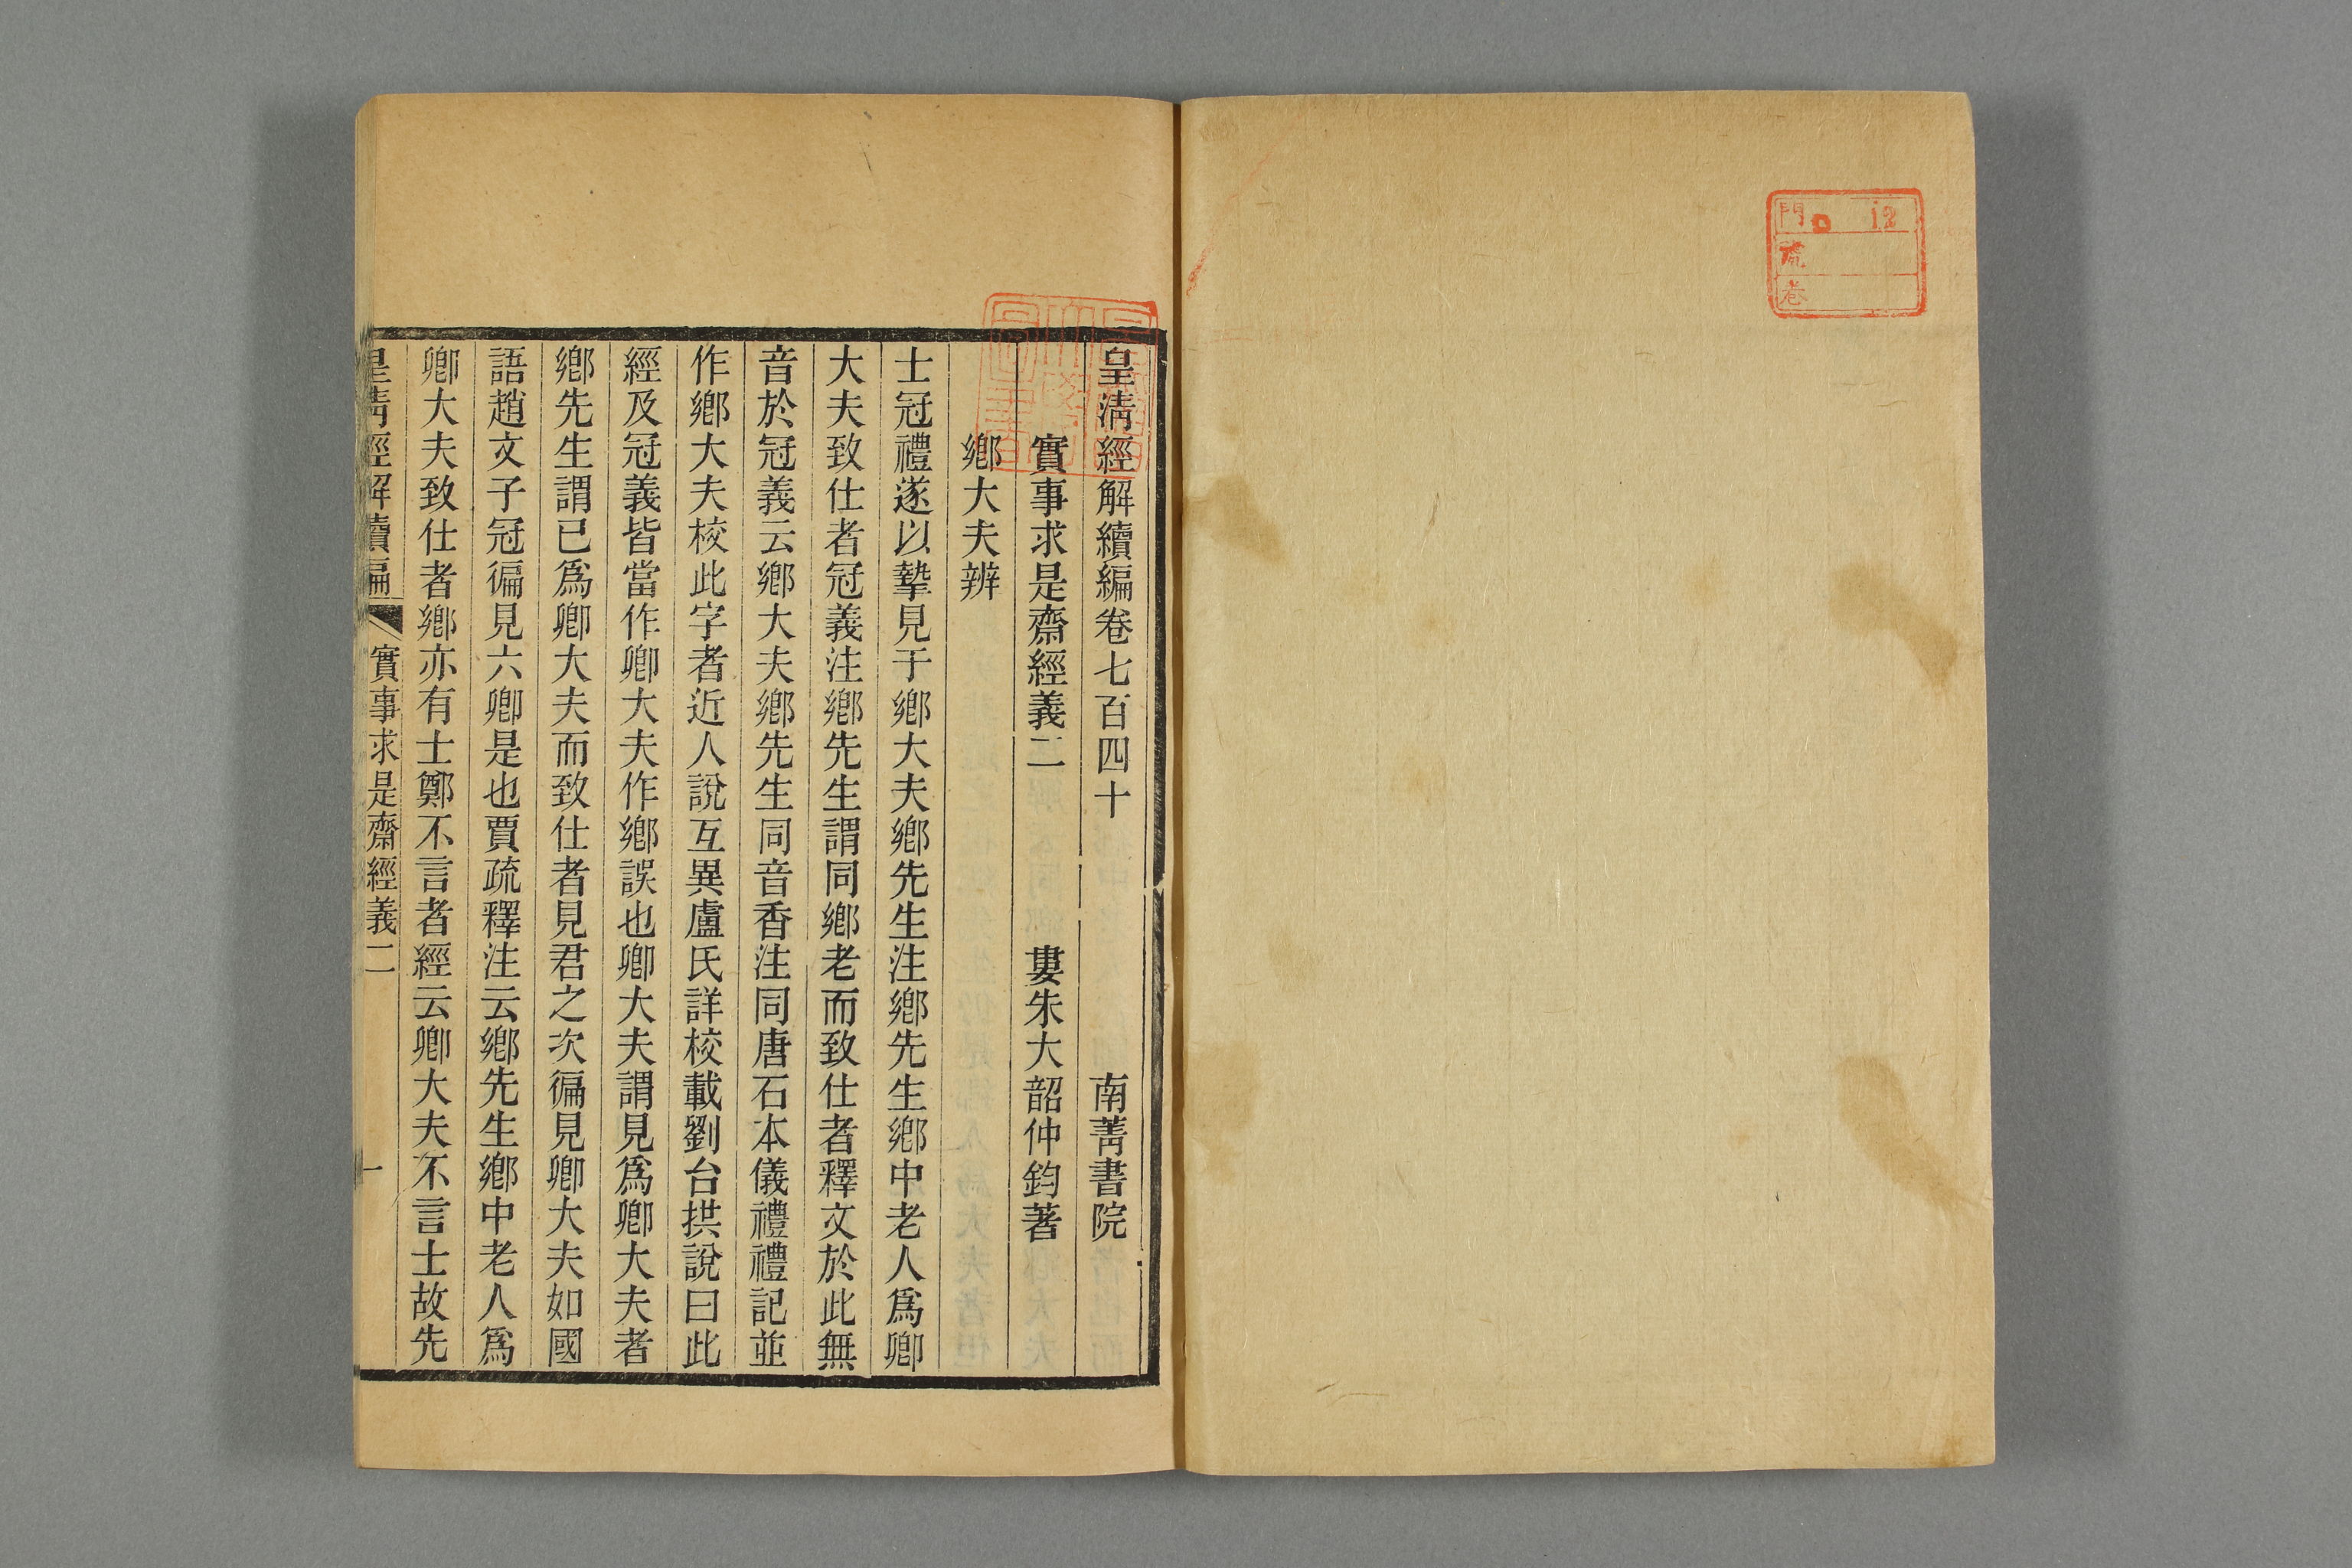 門 12
號
卷
皇清經解續編卷七百四十 南菁書院
實事求是齋經義二 婁朱大韶仲鈞著
鄉大夫辨
士冠禮遂以摯見于鄉大夫鄉先生注鄉先生鄉中老人爲卿
大夫致仕者冠義注鄉先生謂同鄉老而致仕者釋文於此無
音於冠義云鄉大夫鄉先生同音香注同唐石本儀禮禮記並
作鄉大夫校此字者近人說互異盧氏詳校載劉台拱說曰此
經及冠義皆當作卿大夫作鄉誤也卿大夫謂見爲卿大夫者
鄉先生謂已爲卿大夫而致仕者見君之次徧見卿大夫如國
語趙文子冠徧見六卿是也賈疏釋注云鄉先生鄉中老人爲
卿大夫致仕者鄉亦有士鄭不言者經云卿大夫不言士故先
皇清經解續編 實事求是齋經義二 一